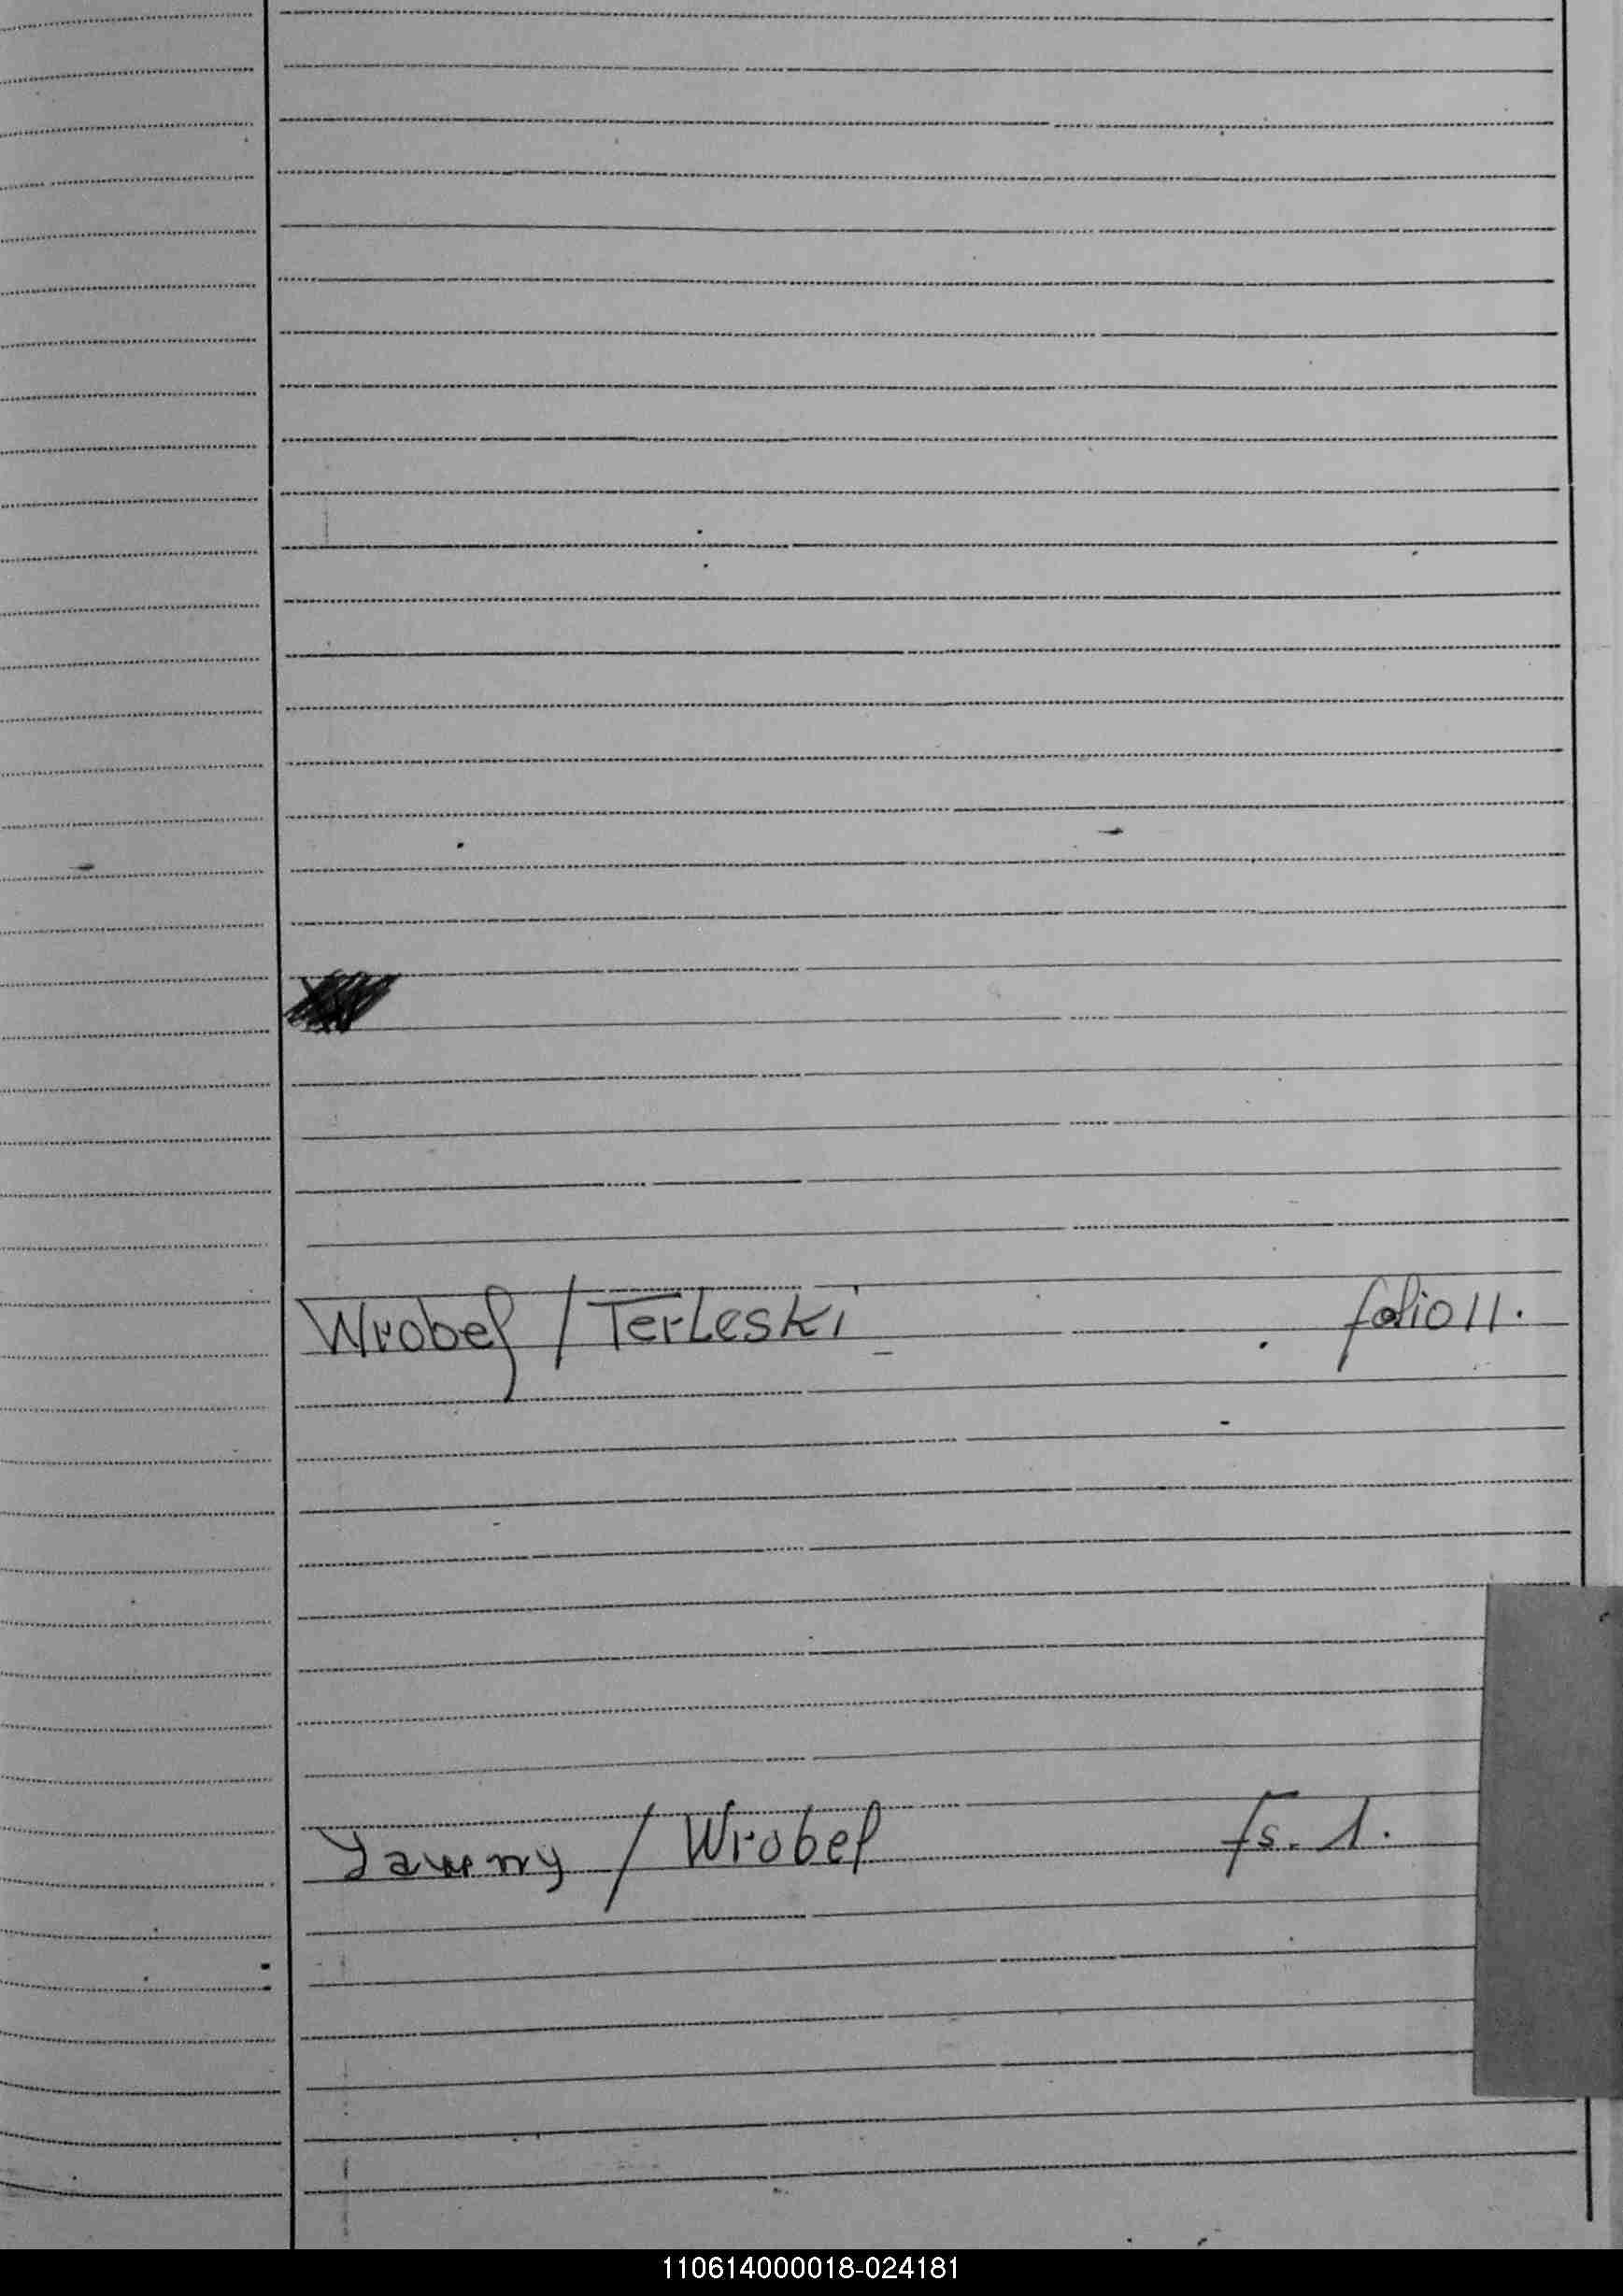 Wrobel / Terleski folio 11.
/ Wrobel fs. 1.
110614000018-024181